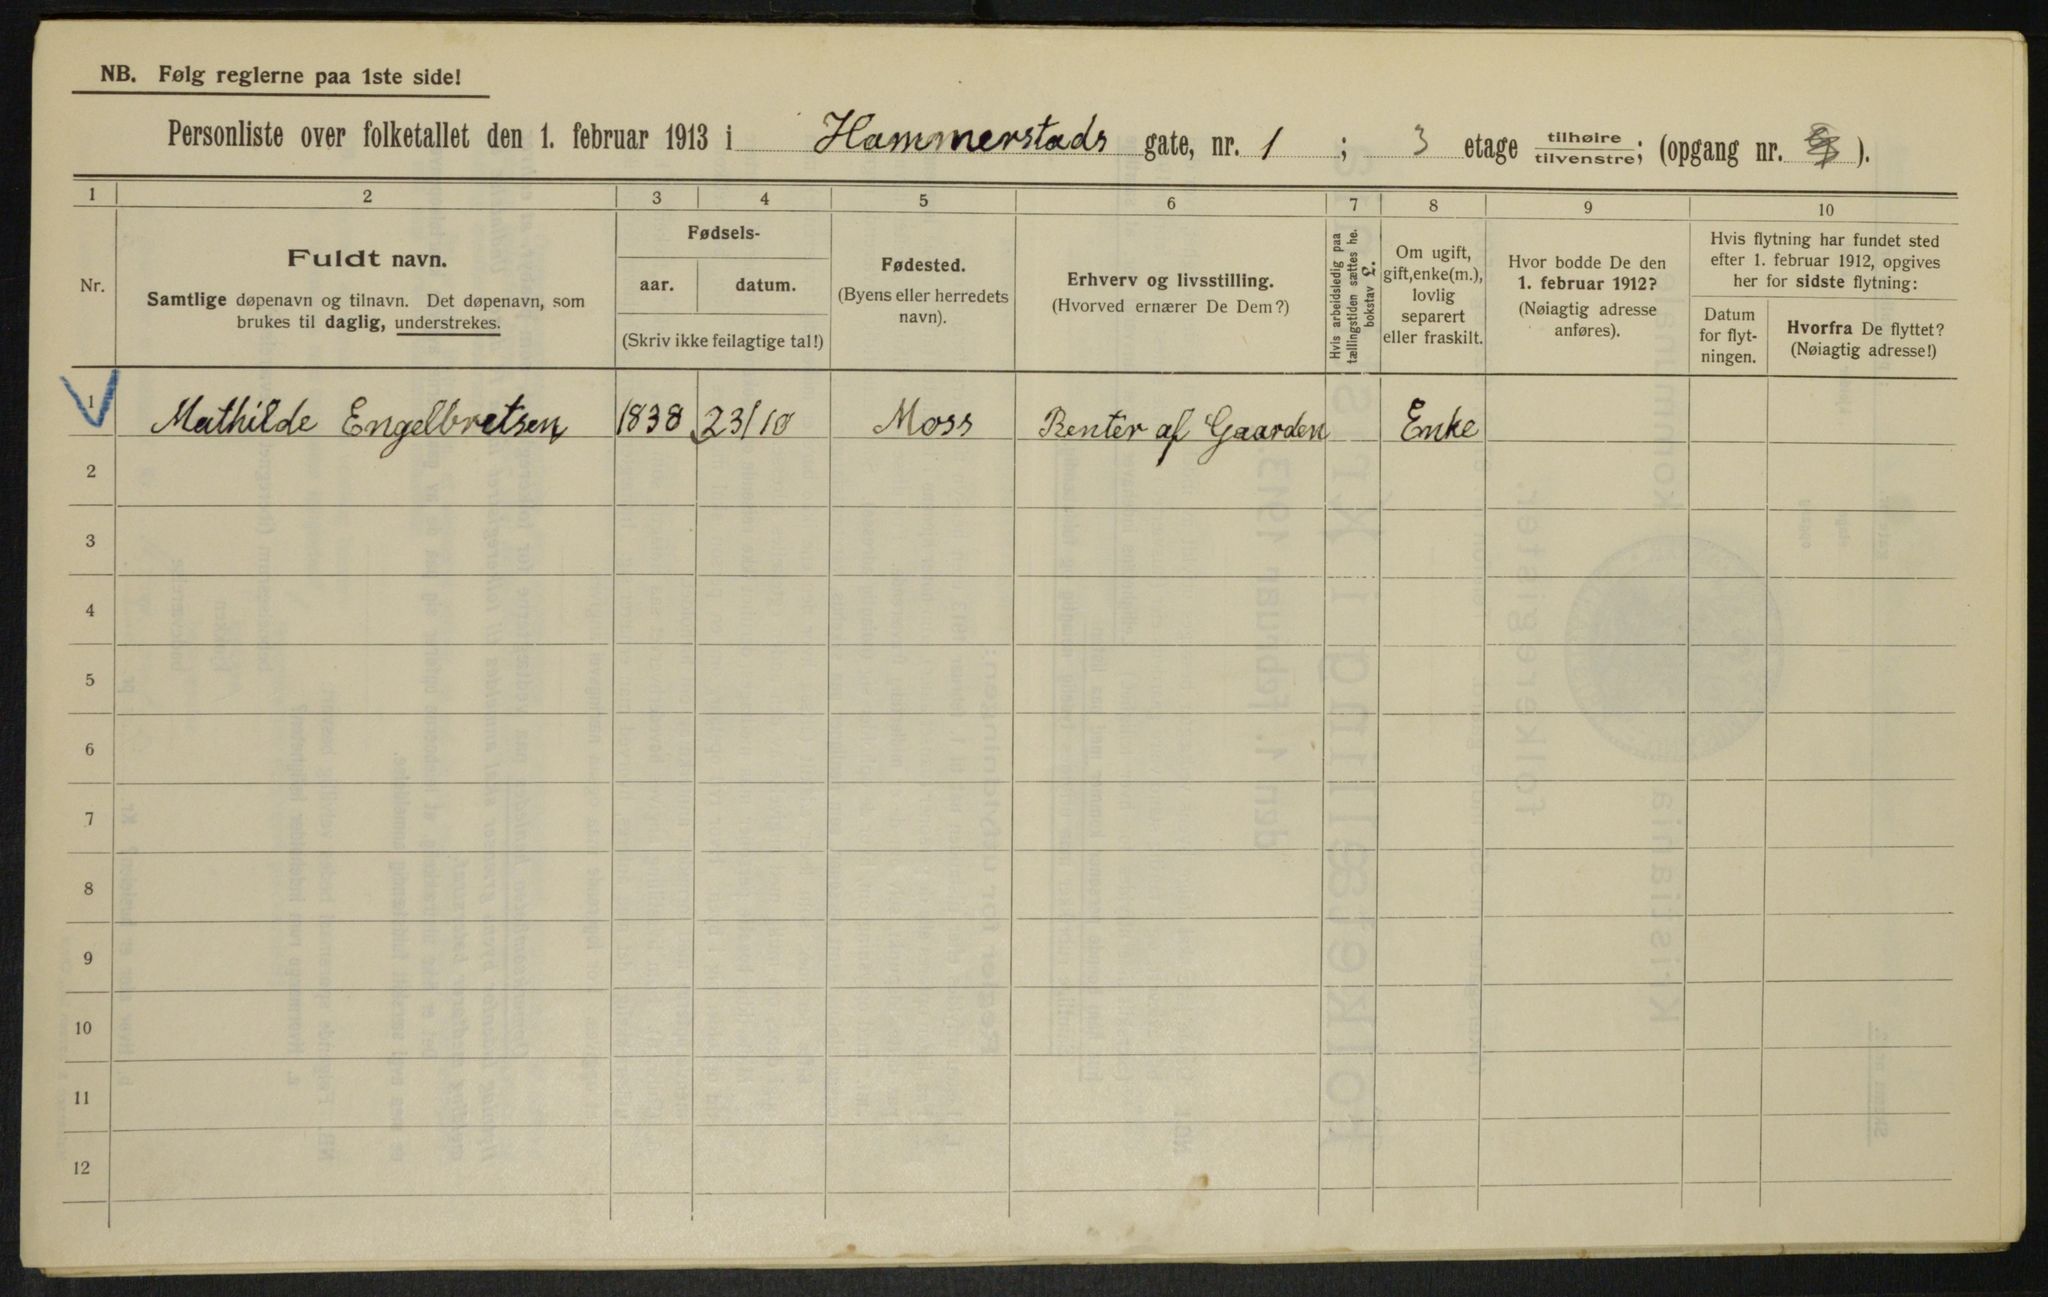 NB. Følg reglerne paa 1ste side!
Personliste over folketallet den 1. februar 1913 i Hammerstads gate, nr. 1 ; 3 etage tilhøire/tilvenstre; (opgang nr. ).
1 2 3 4 5 6 7 8 9 10
Nr.
Fuldt navn.
Samtlige døpenavn og tilnavn. Det døpenavn, som
brukes til daglig, understrekes.
Fødsels-
aar. datum.
(Skriv ikke feilagtige tal!)
Fødested.
(Byens eller herredets
navn).
Erhverv og livsstilling.
(Hvorved ernærer De Dem?)
Hvis arbeidsledig paa
tællingstiden sættes he.
bokstav L.
Om ugift,
gift, enke(m.),
lovlig
separert
eller fraskilt.
Hvor bodde De den
1. februar 1912?
(Nøiagtig adresse
anføres).
Hvis flytning har fundet sted
efter 1. februar 1912, opgives
her for sidste flytning:
Datum
for flyt-
ningen.
Hvorfra De flyttet?
(Nøiagtig adresse!)
1 Mathilde Engelbretsen 1838 23/10 Moss Renter af Gaarden Enke
2
3
4
5
6
7
8
9
10
11
12